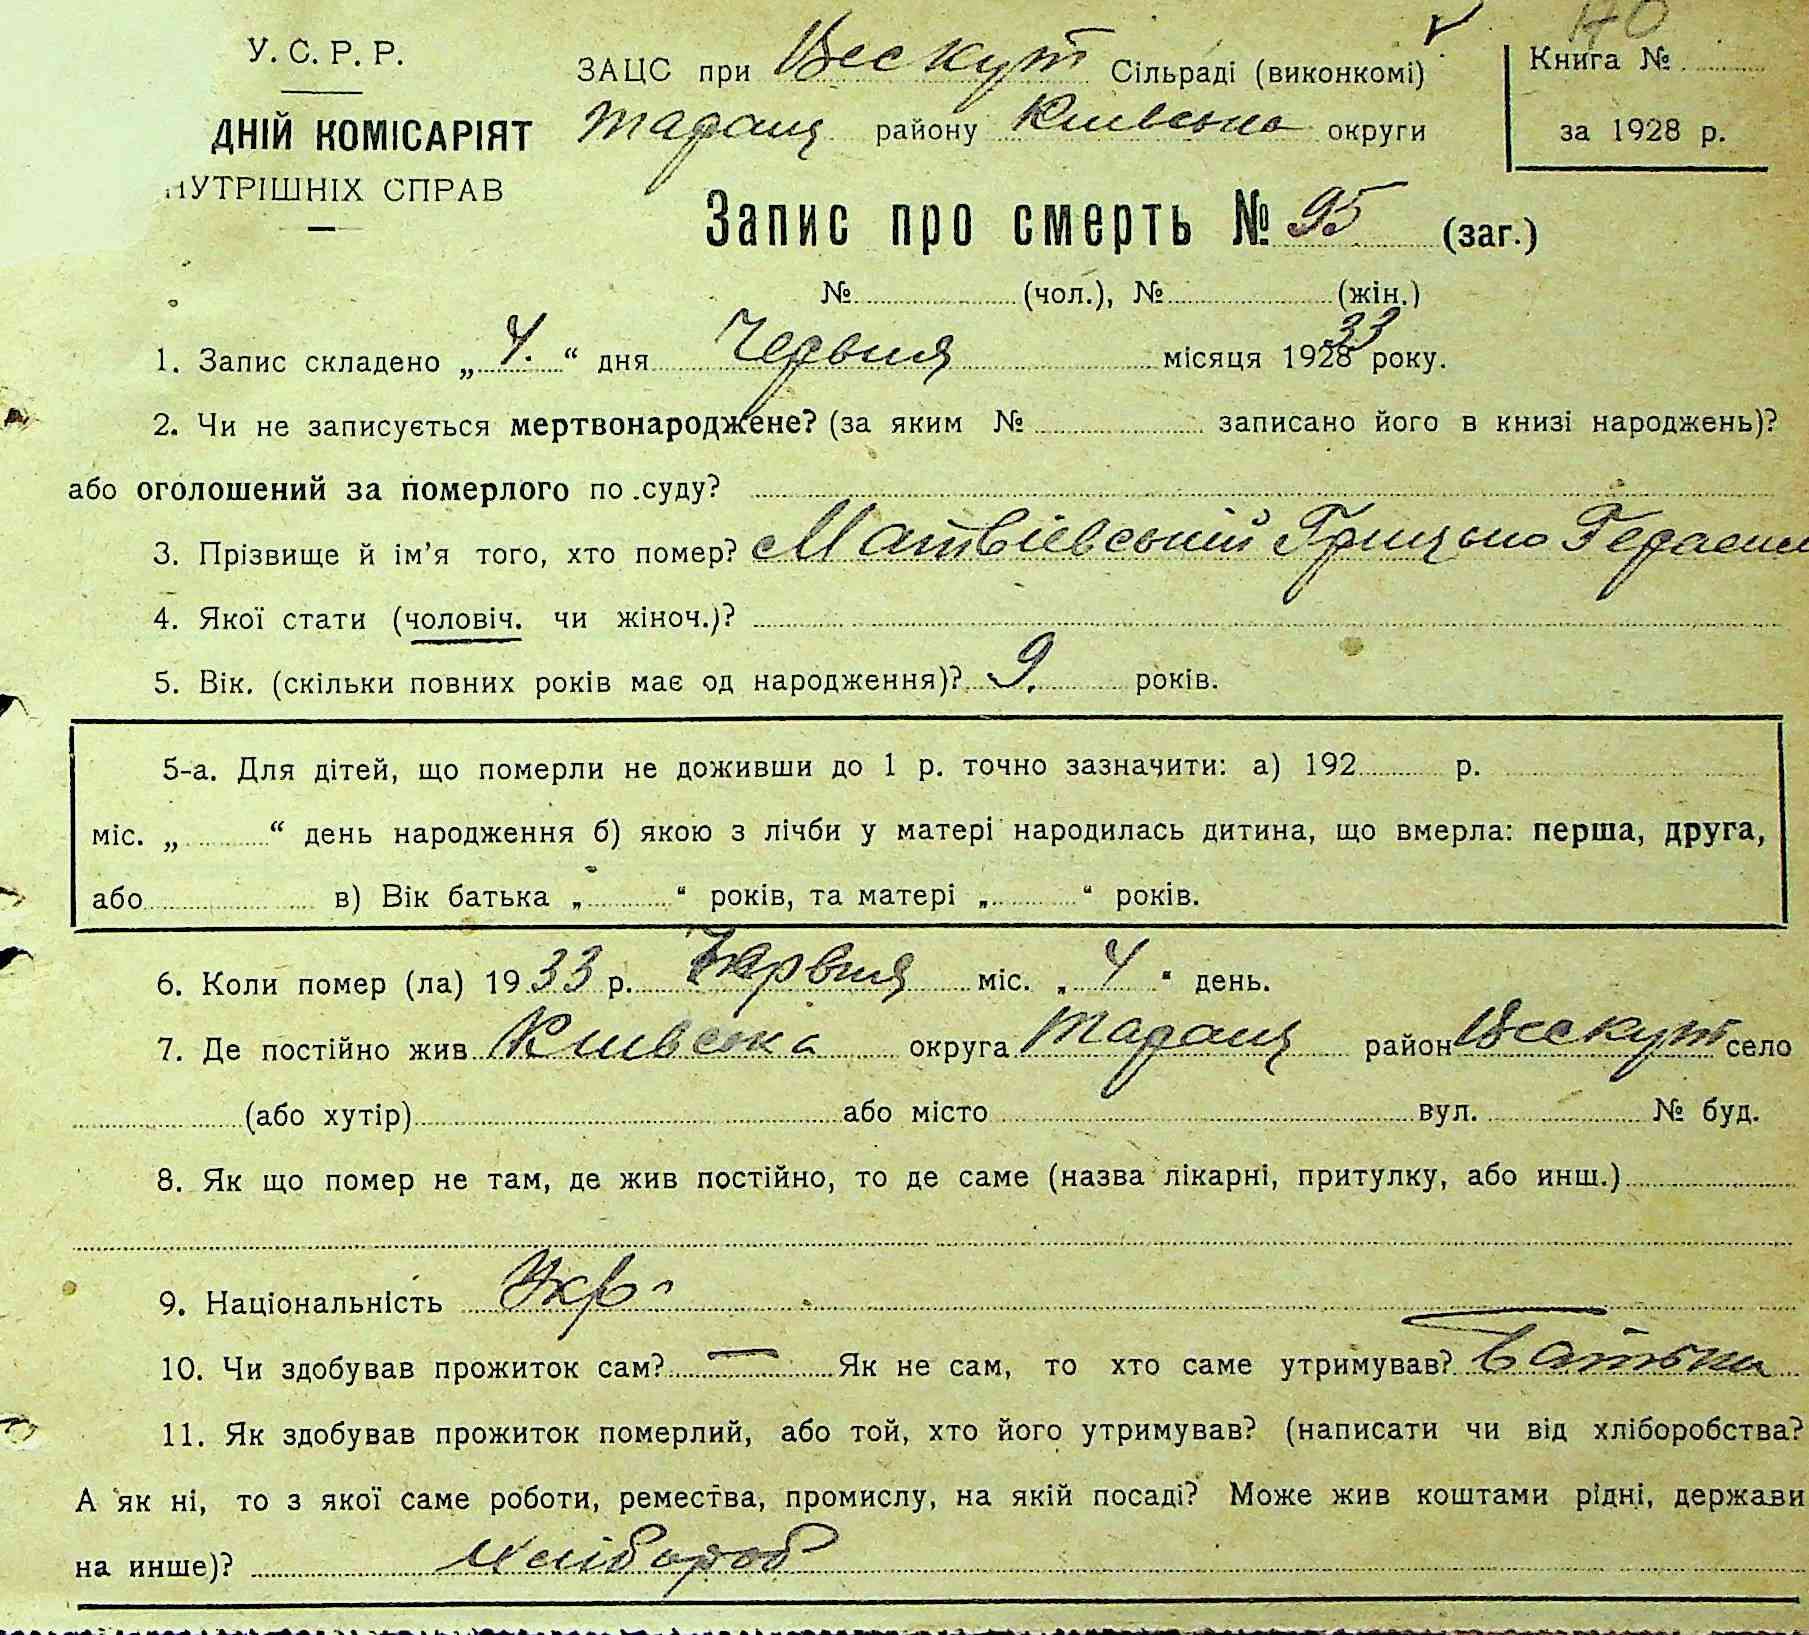 У. С. Р. Р.
ДНІЙ КОМІСАРІЯТ
НУТРІШНІХ СПРАВ
ЗАЦС при Вескут Сільраді (виконкомі)
Таращ району Київська округи
Книга №
за 1928 р.
Запис про смерть № 95 (заг.)
№ (чол.), № (жін.)
1. Запис складено „ 4. “ дня Червня місяця 192833 року.
2. Чи не записується мертвонароджене? (за яким № записано його в книзі народжень)?
або оголошений за померлого по суду?
3. Прізвище й ім’я того, хто помер? Матвієвський Грицько Герасим
4. Якої стати (чоловіч. чи жіноч.)?
5. Вік. (скільки повних років має од народження)? 9. років.
5-а. Для дітей, що померли не доживши до 1 р. точно зазначити: а) 192 р.
міс. „ “ день народження б) якою з лічби у матері народилась дитина, що вмерла: перша, друга,
або в) Вік батька „ “ років, та матері „ “ років.
6. Коли помер (ла) 1933 р. Червня міс. „ 4 “ день.
7. Де постійно жив Київська округа Таращ район Вескут село
(або хутір) або місто вул. № буд.
8. Як що помер не там, де жив постійно, то де саме (назва лікарні, притулку, або инш.)
9. Національність Укр
10. Чи здобував прожиток сам? — Як не сам, то хто саме утримував? Батько
11. Як здобував прожиток померлий, або той, хто його утримував? (написати чи від хліборобства?
А як ні, то з якої саме роботи, ремества, промислу, на якій посаді? Може жив коштами рідні, держави
на инше)? хлібороб